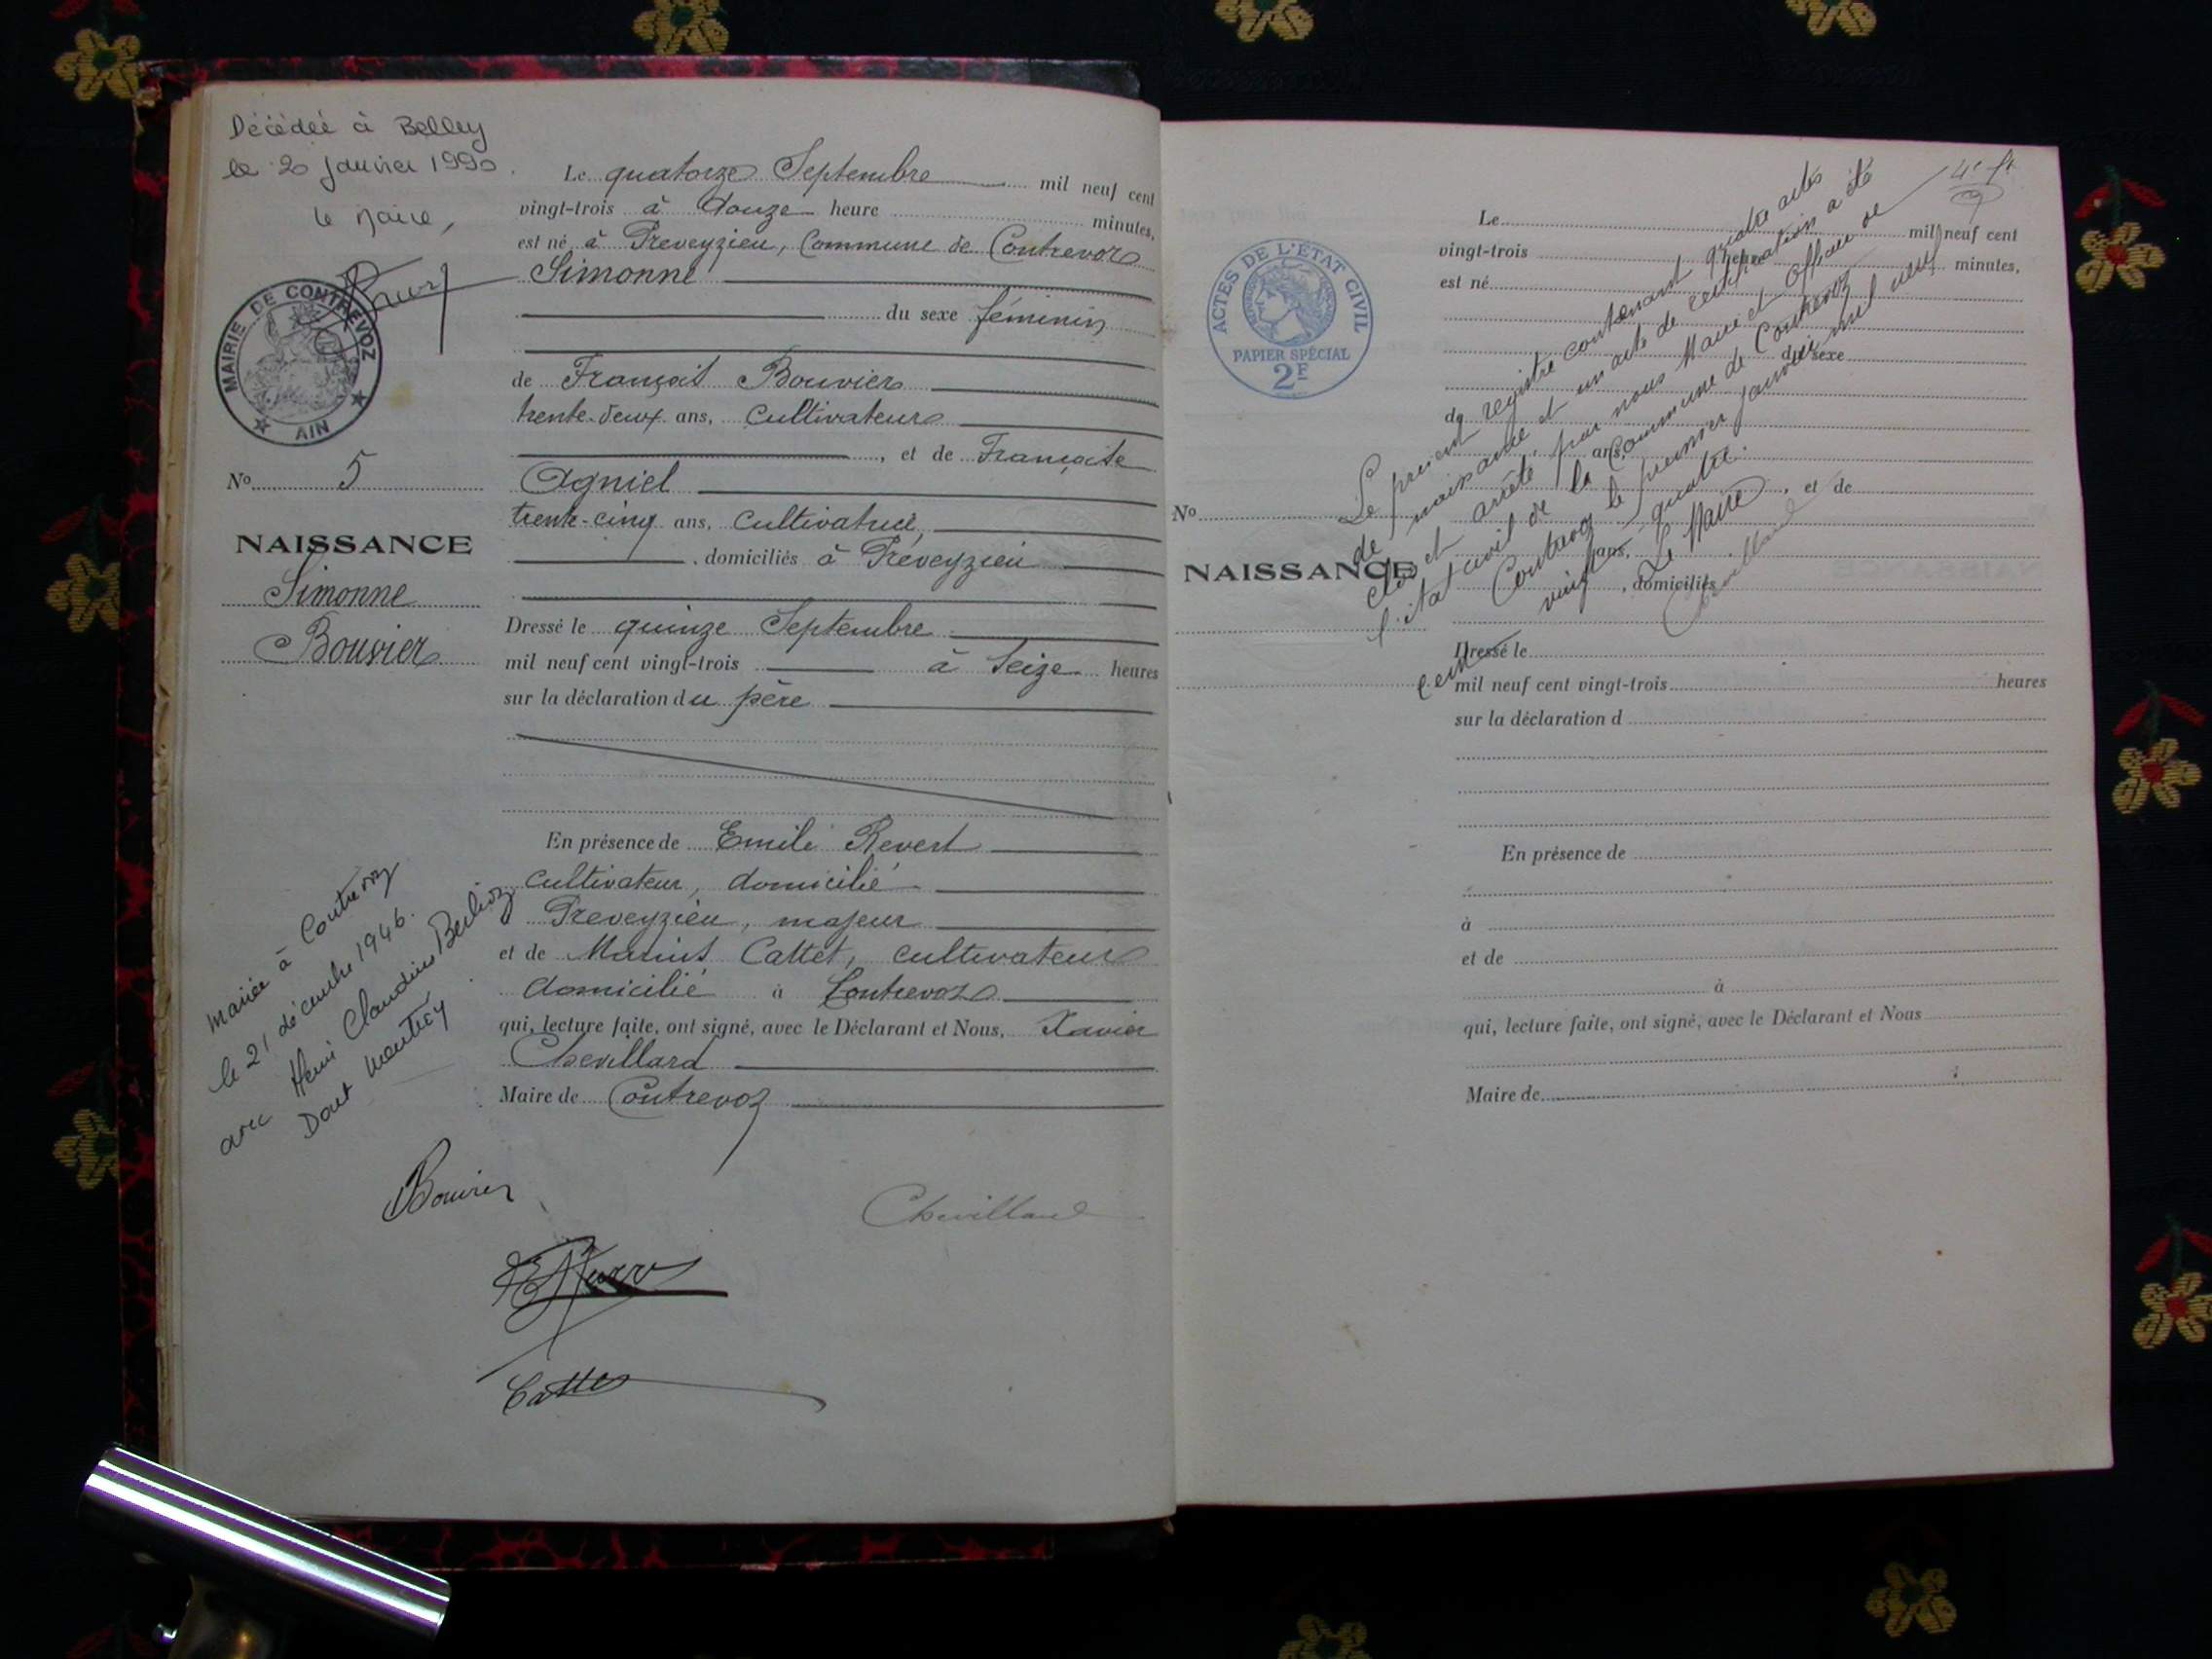 Décédée à Belley
le 20 Janvier 1990.
le Maire,
MAIRIE DE CONTREVOZ
AIN
No 5
NAISSANCE
Simonne
Bouvier
Le quatorze Septembre mil neuf cent
vingt-trois à douze heure minutes,
est né à Preveyzieu, Commune de Contrevoz
Simonne
du sexe féminin
de François Bouvier
trente-deux ans, Cultivateur
, et de Françoise
Agniel
trente-cinq ans, Cultivatrice,
, domiciliés à Préveyzieu
Dressé le quinze Septembre
mil neuf cent vingt-trois à seize heures
sur la déclaration du père
En présence de Emile Revert
Cultivateur, domicilié
à Preveyzieu, majeur
et de Marius Cattet, cultivateur
domicilié à Contrevoz
qui, lecture faite, ont signé, avec le Déclarant et Nous, Xavier
Chevillard
Maire de Contrevoz
Mariée à Contrevoz
le 21 décembre 1946.
avec Henri Claudius Berlioz
Dont Mention
Bouvier
Chevillard
Cattet
ACTES DE L'ÉTAT CIVIL
PAPIER SPÉCIAL
2F
No
NAISSANCE
Le mil neuf cent
vingt-trois heure minutes,
est né
du sexe
de
ans,
, et de
ans,
, domiciliés
Dressé le
mil neuf cent vingt-trois heures
sur la déclaration d
En présence de
à
et de
à
qui, lecture faite, ont signé, avec le Déclarant et Nous
Maire de
Le présent registre contenant quatre actes
de naissance et un acte de certification a été
clos et arrêté par nous Maire et Officier de
l'état civil de la Commune de Contrevoz
Contrevoz le premier Janvier mil neuf
cent vingt-quatre.
Le Maire
Chevillard